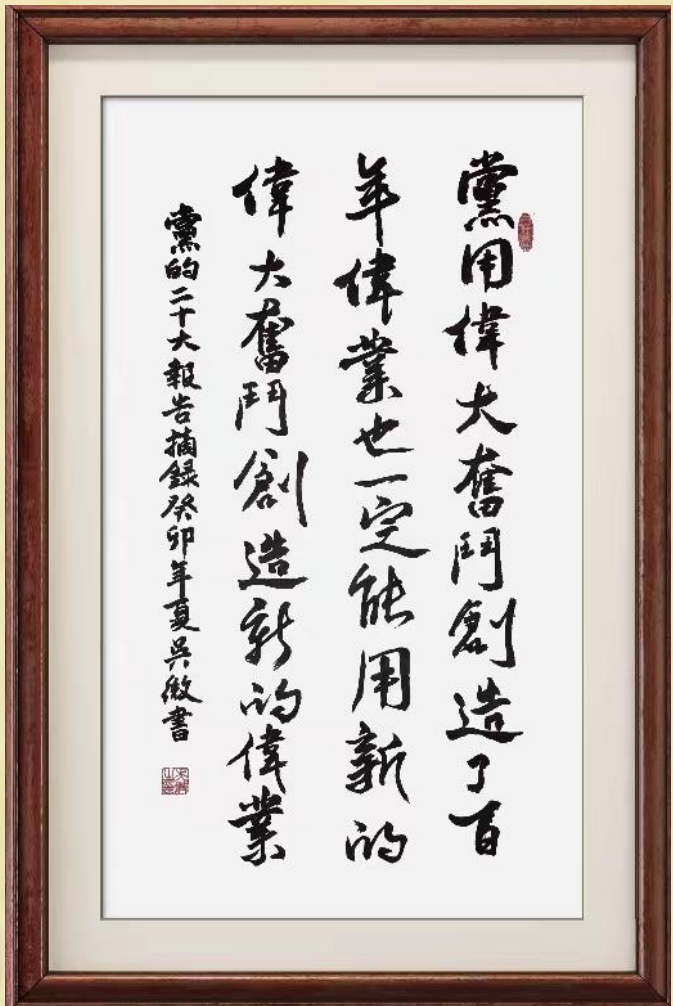 黨用偉大奮鬥創造了百
年偉業也一定能用新的
偉大奮鬥創造新的偉業
黨的二十大報告摘錄癸卯年夏吳微書